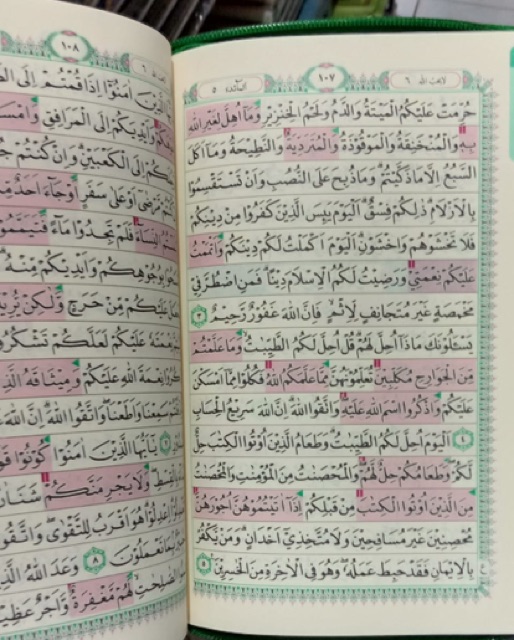 لايحب الله ٦
١٠٧
المائدة ٥
حُرِّمَتْ عَلَيْكُمُ الْمَيْتَةُ وَالدَّمُ وَلَحْمُ الْخِنْزِيْرِ وَمَآ اُهِلَّ لِغَيْرِ اللّٰهِ
بِهٖ وَالْمُنْخَنِقَةُ وَالْمَوْقُوْذَةُ وَالْمُتَرَدِّيَةُ وَالنَّطِيْحَةُ وَمَآ اَكَلَ
السَّبُعُ اِلَّا مَا ذَكَّيْتُمْ وَمَا ذُبِحَ عَلَى النُّصُبِ وَاَنْ تَسْتَقْسِمُوْا
بِالْاَزْلَامِ ذٰلِكُمْ فِسْقٌ اَلْيَوْمَ يَىِٕسَ الَّذِيْنَ كَفَرُوْا مِنْ دِيْنِكُمْ
فَلَا تَخْشَوْهُمْ وَاخْشَوْنِ اَلْيَوْمَ اَكْمَلْتُ لَكُمْ دِيْنَكُمْ وَاَتْمَمْتُ
عَلَيْكُمْ نِعْمَتِيْ وَرَضِيْتُ لَكُمُ الْاِسْلَامَ دِيْنًا فَمَنِ اضْطُرَّ فِيْ
مَخْمَصَةٍ غَيْرَ مُتَجَانِفٍ لِّاِثْمٍ فَاِنَّ اللّٰهَ غَفُوْرٌ رَّحِيْمٌ ٣
يَسْـَٔلُوْنَكَ مَاذَآ اُحِلَّ لَهُمْ قُلْ اُحِلَّ لَكُمُ الطَّيِّبٰتُ وَمَا عَلَّمْتُمْ
مِّنَ الْجَوَارِحِ مُكَلِّبِيْنَ تُعَلِّمُوْنَهُنَّ مِمَّا عَلَّمَكُمُ اللّٰهُ فَكُلُوْا مِمَّآ اَمْسَكْنَ
عَلَيْكُمْ وَاذْكُرُوا اسْمَ اللّٰهِ عَلَيْهِ وَاتَّقُوا اللّٰهَ اِنَّ اللّٰهَ سَرِيْعُ الْحِسَابِ
٤ اَلْيَوْمَ اُحِلَّ لَكُمُ الطَّيِّبٰتُ وَطَعَامُ الَّذِيْنَ اُوْتُوا الْكِتٰبَ حِلٌّ
لَّكُمْ وَطَعَامُكُمْ حِلٌّ لَّهُمْ وَالْمُحْصَنٰتُ مِنَ الْمُؤْمِنٰتِ وَالْمُحْصَنٰتُ
مِنَ الَّذِيْنَ اُوْتُوا الْكِتٰبَ مِنْ قَبْلِكُمْ اِذَآ اٰتَيْتُمُوْهُنَّ اُجُوْرَهُنَّ
مُحْصِنِيْنَ غَيْرَ مُسَافِحِيْنَ وَلَا مُتَّخِذِيْٓ اَخْدَانٍ وَمَنْ يَّكْفُرْ
بِالْاِيْمَانِ فَقَدْ حَبِطَ عَمَلُهٗ وَهُوَ فِى الْاٰخِرَةِ مِنَ الْخٰسِرِيْنَ ٥
١٠٨
الَّذِيْنَ اٰمَنُوْٓا اِذَا قُمْتُمْ اِلَى
وَاَيْدِيَكُمْ اِلَى الْمَرَافِقِ
اِلَى الْكَعْبَيْنِ وَاِنْ كُنْتُمْ
مَّرْضٰٓى اَوْ عَلٰى سَفَرٍ اَوْ جَآءَ اَحَدٌ
النِّسَآءَ فَلَمْ تَجِدُوْا مَآءً فَتَيَمَّمُوْا
بِوُجُوْهِكُمْ وَاَيْدِيْكُمْ مِّنْهُ
عَلَيْكُمْ مِّنْ حَرَجٍ وَّلٰكِنْ
نِعْمَتَهٗ عَلَيْكُمْ لَعَلَّكُمْ تَشْكُرُوْنَ
نِعْمَةَ اللّٰهِ عَلَيْكُمْ وَمِيْثَاقَهُ
سَمِعْنَا وَاَطَعْنَا وَاتَّقُوا اللّٰهَ اِنَّ اللّٰهَ
يٰٓاَيُّهَا الَّذِيْنَ اٰمَنُوْا كُوْنُوْا
وَلَا يَجْرِمَنَّكُمْ شَنَاٰنُ
اِعْدِلُوْا هُوَ اَقْرَبُ لِلتَّقْوٰى وَاتَّقُوا
تَعْمَلُوْنَ ٨ وَعَدَ اللّٰهُ
الصّٰلِحٰتِ لَهُمْ مَّغْفِرَةٌ وَّاَجْرٌ عَظِيْمٌ